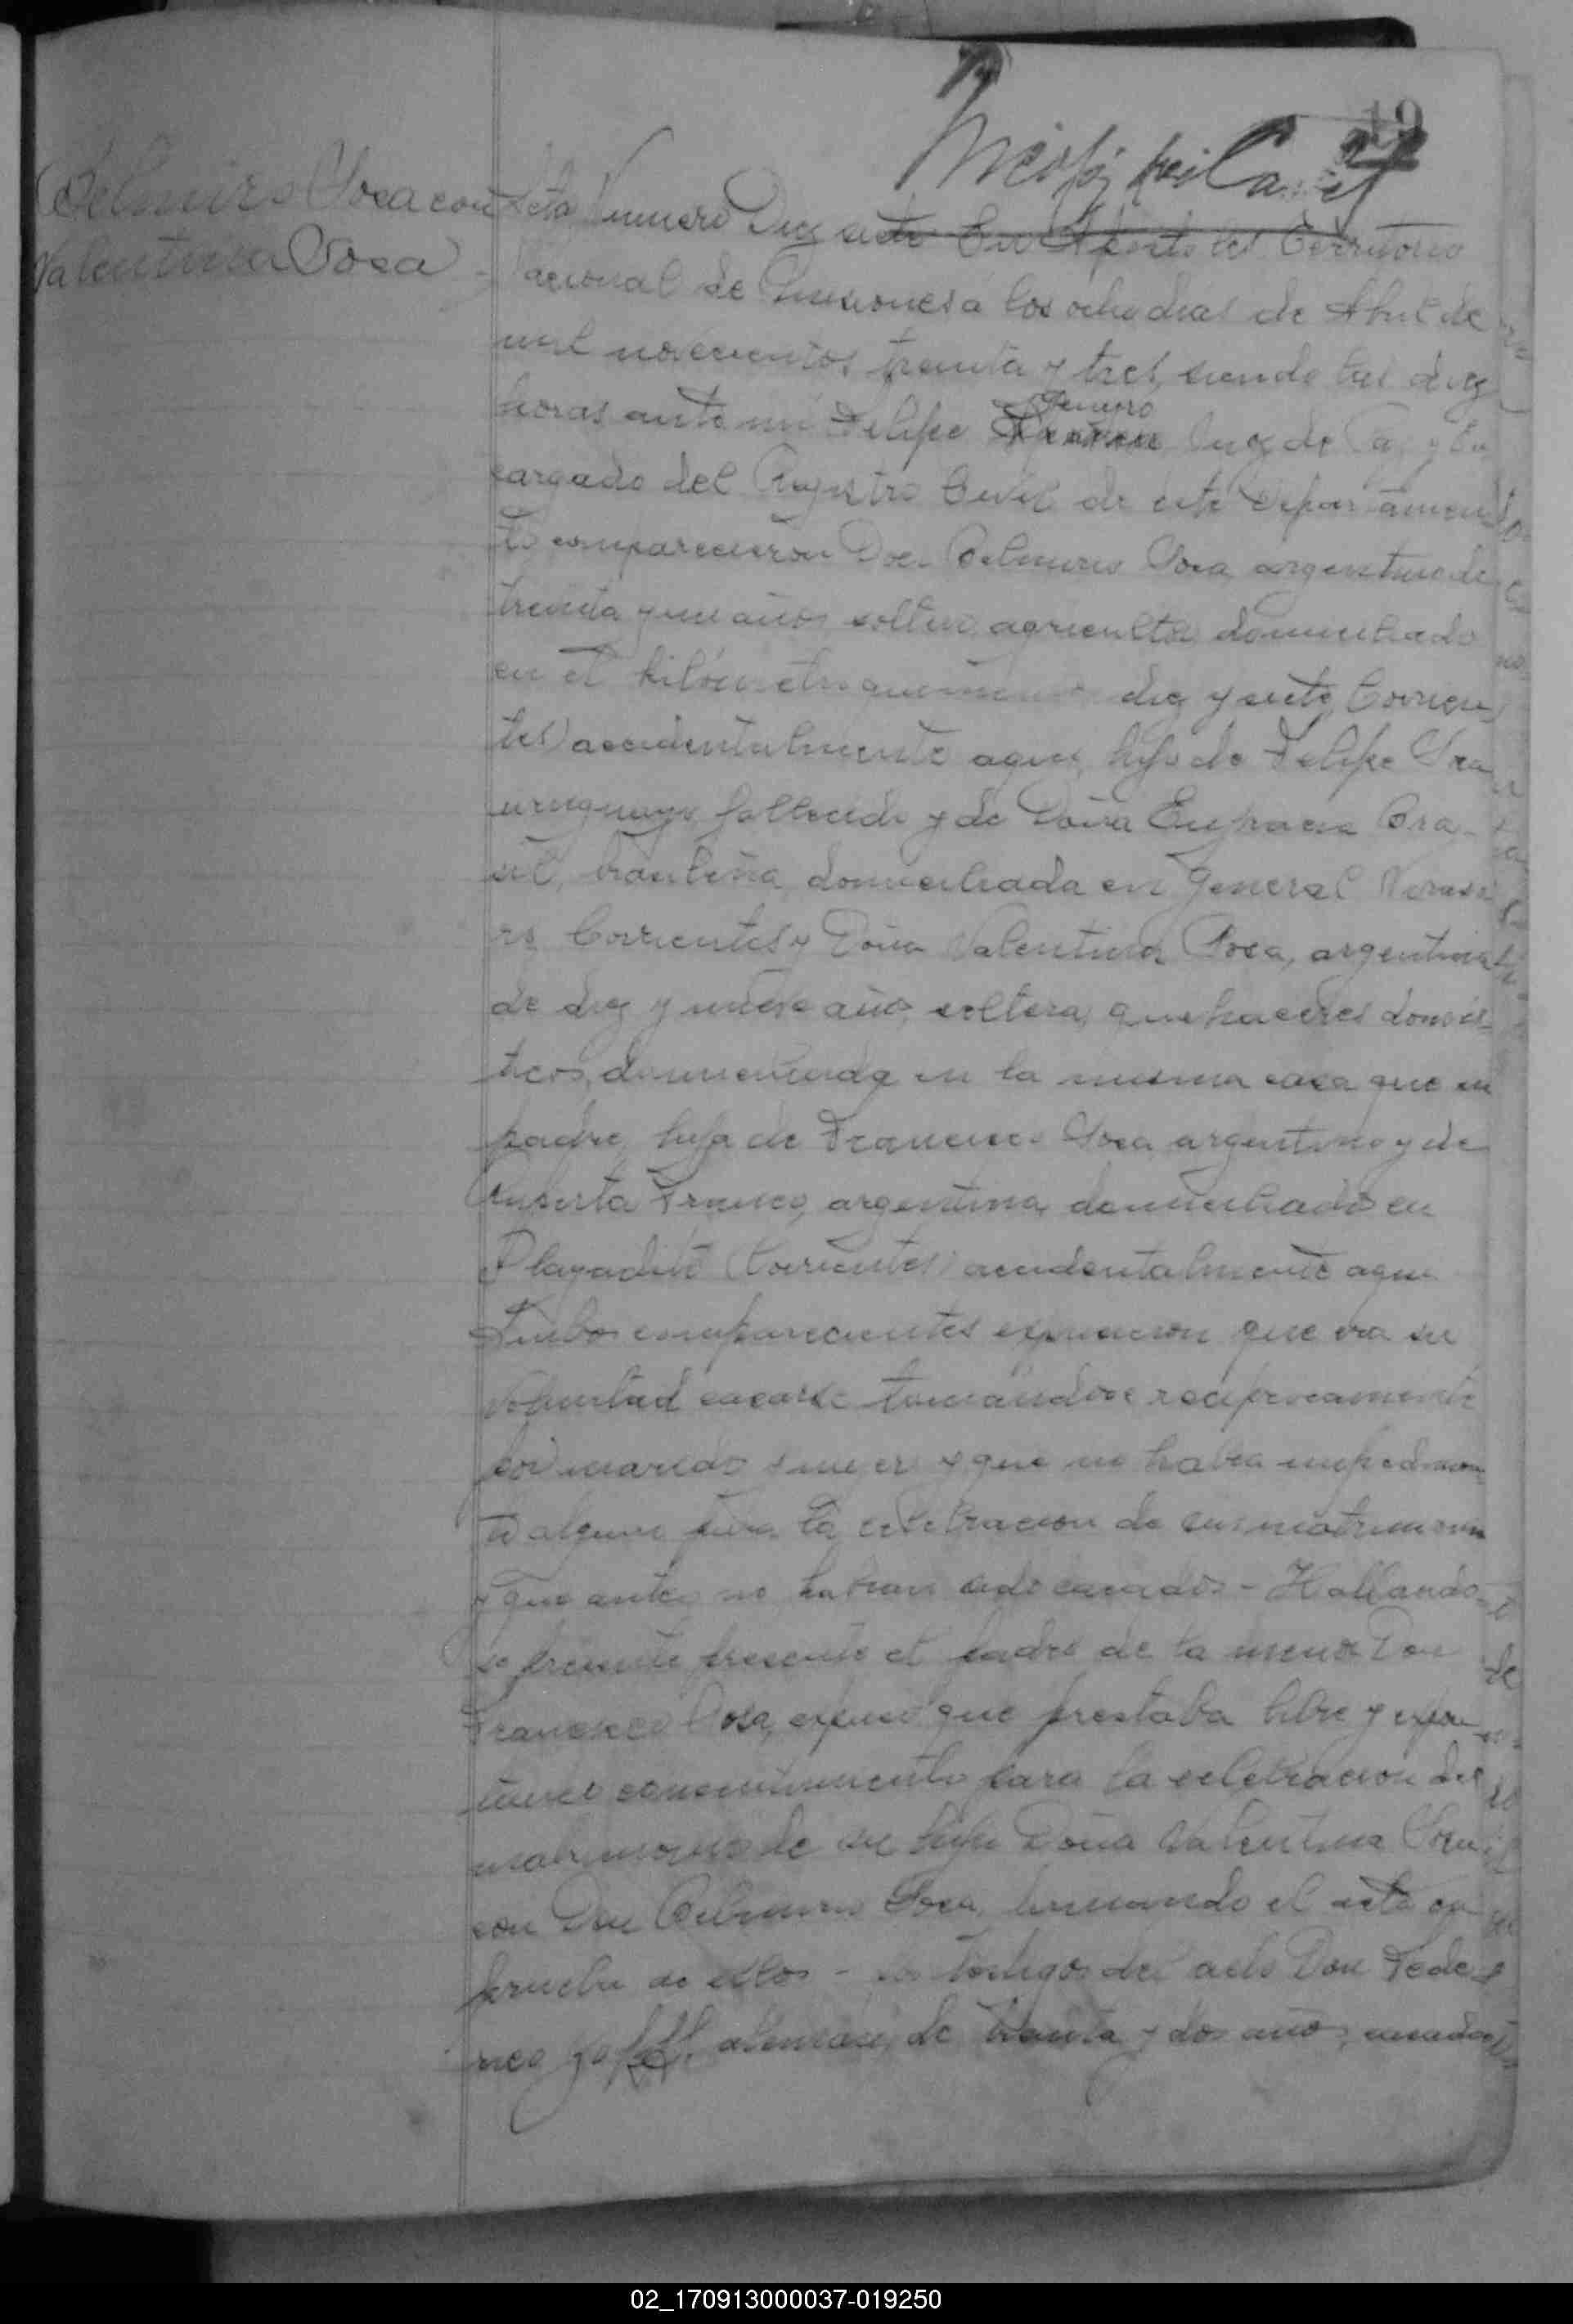 19
Belmiro Sosa con
Valentina Sosa
Acta Numero Diez siete En Apostoles Territorio
Nacional de Misiones a los ocho dias de Abril de
mil novecientos treinta y tres, siendo las diez
horas ante mi Felipe Juez de Paz y En
cargado del Registro Civil de este Departamen
to comparecieron Don Belmiro Sosa, argentino de
treinta y un años soltero, agricultor domiciliado
en el kilómetro quinientos diez y siete, Corrien
tes) accidentalmente aqui, hijo de Felipe Sosa
uruguayo, fallecido y de Doña Eufracia Bra-
sil, brasileña, domiciliada en General Viraso
ro Corrientes y Doña Valentina Sosa, argentina
de diez y nueve años, soltera, quehaceres domés-
ticos, domiciliada en la misma casa que su
padre, hija de Francisco Sosa argentino y de
Ruberta Franco, argentina, domiciliados en
Playadito (Corrientes) accidentalmente aqui
Ambos comparecientes expresaron que era su
voluntad casarse tomándose reciprocamente
por marido y mujer y que no habia impedimen
to alguno para la celebracion de su matrimonio
y que antes no habian sido casados - Hallando-
se presente presente el padre de la menor Don
Francisco Sosa, expuso que prestaba libre y espon
taneo consentimiento para la celebracion del
matrimonio de su hija Doña Valentina Sosa
con Don Belmiro Sosa, firmando el acta en
prueba de ellos - los testigos del acto Don Fede
rico alemán, de treinta y dos años, casado
02_170913000037-019250